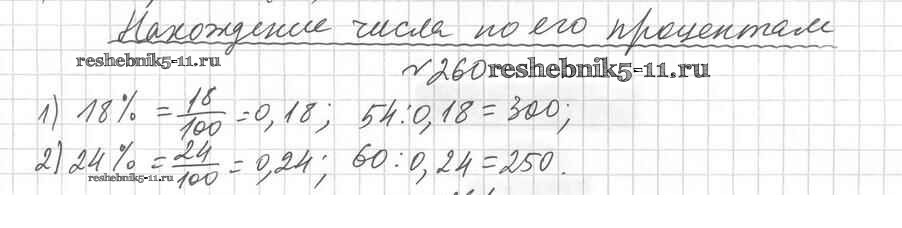 Нахождение числа по его процентам
reshebnik5-11.ru
№260 reshebnik5-11.ru
1) 18% = 18/100 = 0,18; 54:0,18 = 300;
2) 24% = 24/100 = 0,24; 60:0,24 = 250.
reshebnik5-11.ru